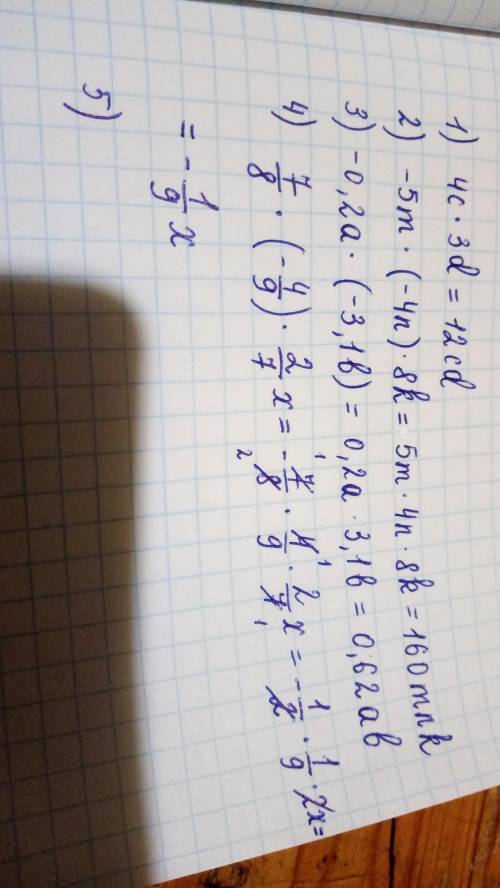 1) 4c · 3d = 12cd
2) -5m · (-4n) · 8k = 5m · 4n · 8k = 160mnk
3) -0,2a · (-3,1b) = 0,2a · 3,1b = 0,62ab
4) 7/8 · (-4/9) · 2/7 x = -7/8 · 4/9 · 2/7 x = -1/2 · 1/9 · 2x =
= -1/9 x
5)